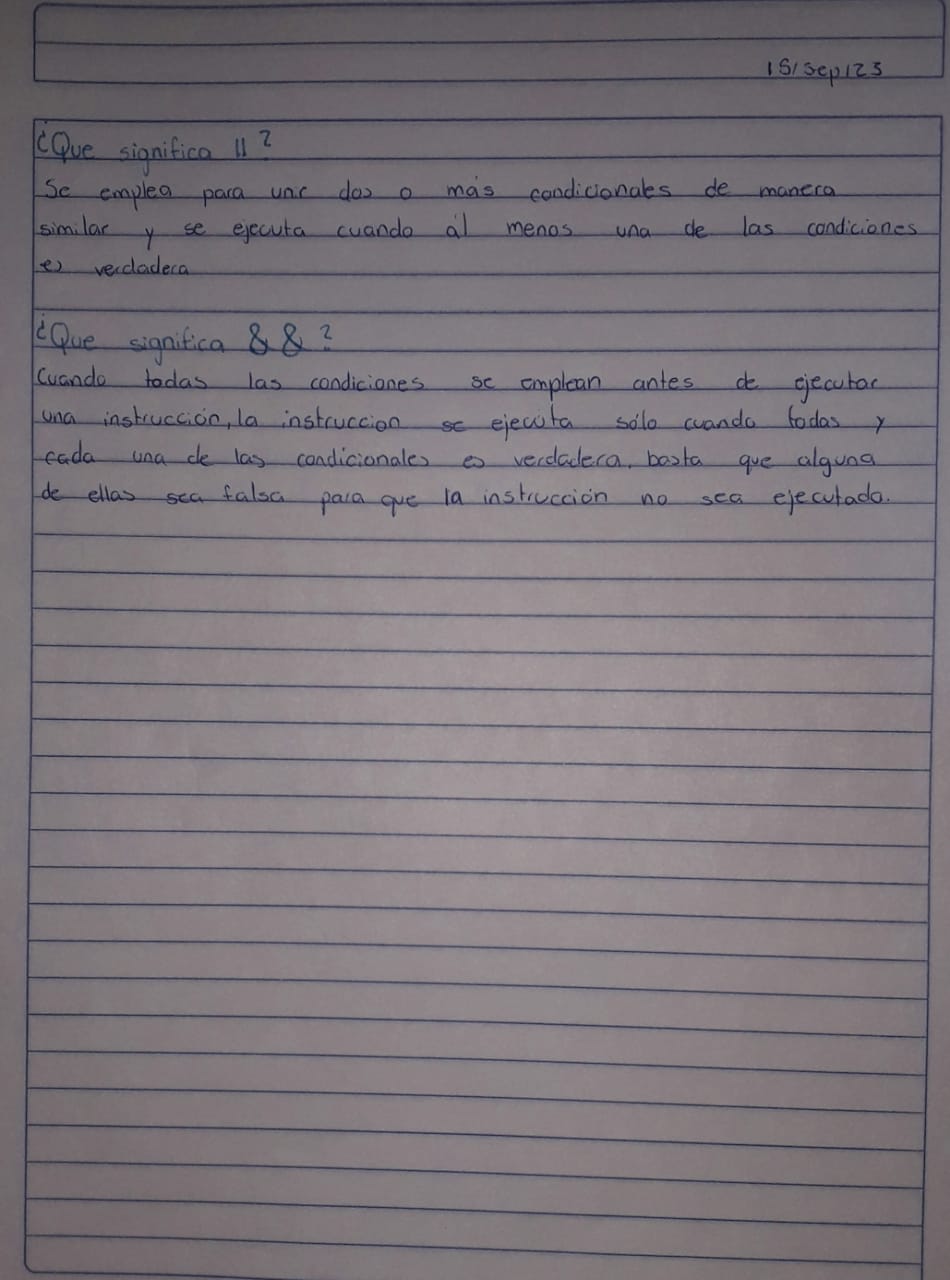 15/sep/23
¿Que significa ||?
Se emplea para unir dos o más condicionales de manera
similar y se ejecuta cuando ál menos una de las condiciones
es verdadera
¿Que significa & & ?
Cuando todas las condiciones se emplean antes de ejecutar
una instrucción, la instruccion se ejecuta sólo cuando todas y
cada una de las condicionales es verdadera, basta que alguna
de ellas sea falsa para que la instrucción no sea ejecutada.